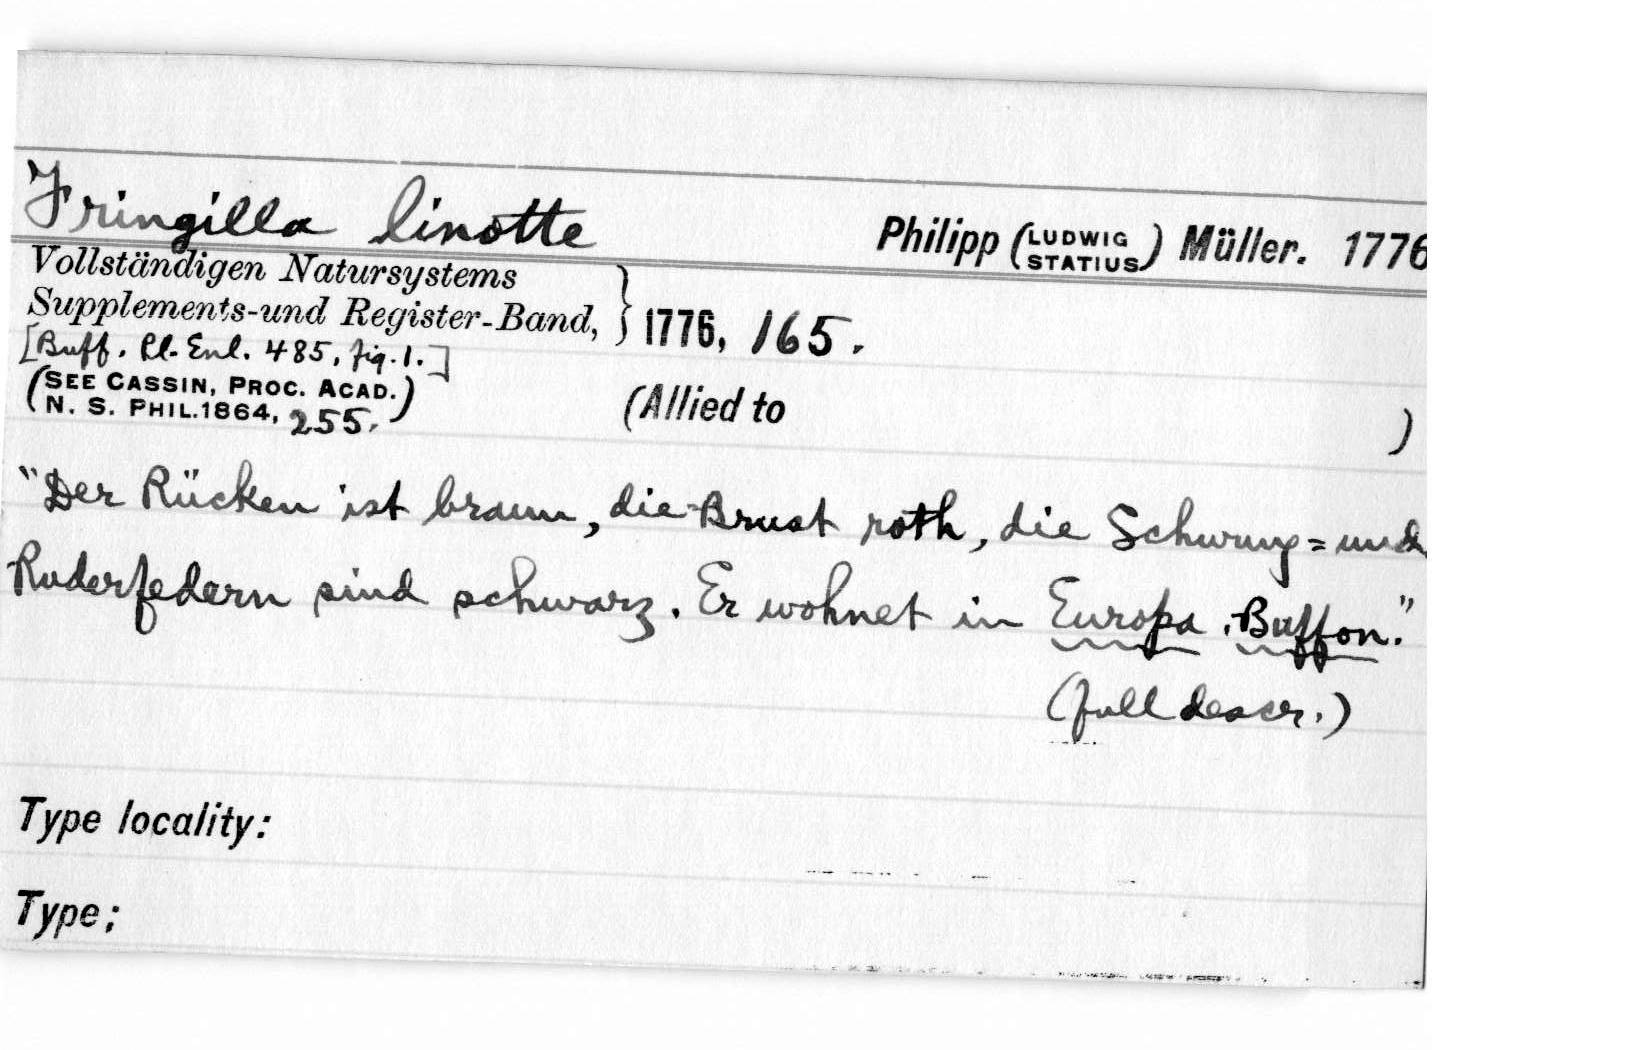 Fringilla linotte Philipp (LUDWIG STATIUS) Müller. 1776
Vollständigen Natursystems
Supplements-und Register-Band, } 1776, 165.
[Buff. Pl. Enl. 485, fig. 1.]
(SEE CASSIN, PROC. ACAD.
N. S. PHIL. 1864, 255.) (Allied to )
"Der Rücken ist braun, die Brust roth, die Schwung= und
Ruderfedern sind schwarz. Er wohnet in Europa. Buffon."
(full descr.)
Type locality:
Type;